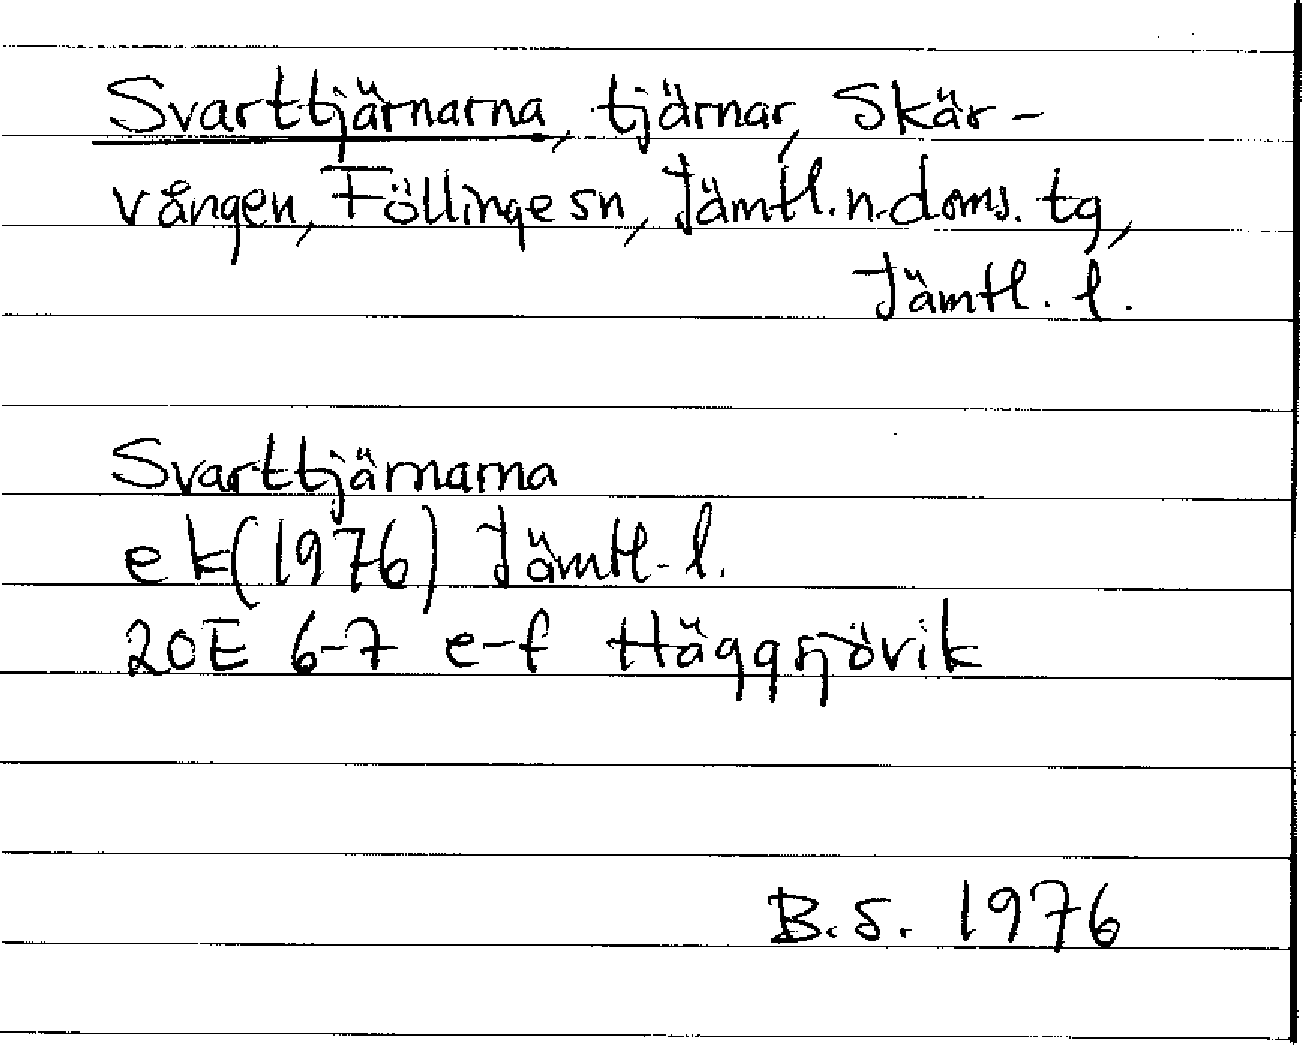 Svarttjärnarna, tjärnar, Skär-
vången, Föllinge sn, Jämtl. n. doms. tg,
Jämtl. l.
Svarttjärnarna
ek (1976) Jämtl. l.
20E 6-7 e-f Häggsjövik
B.S. 1976